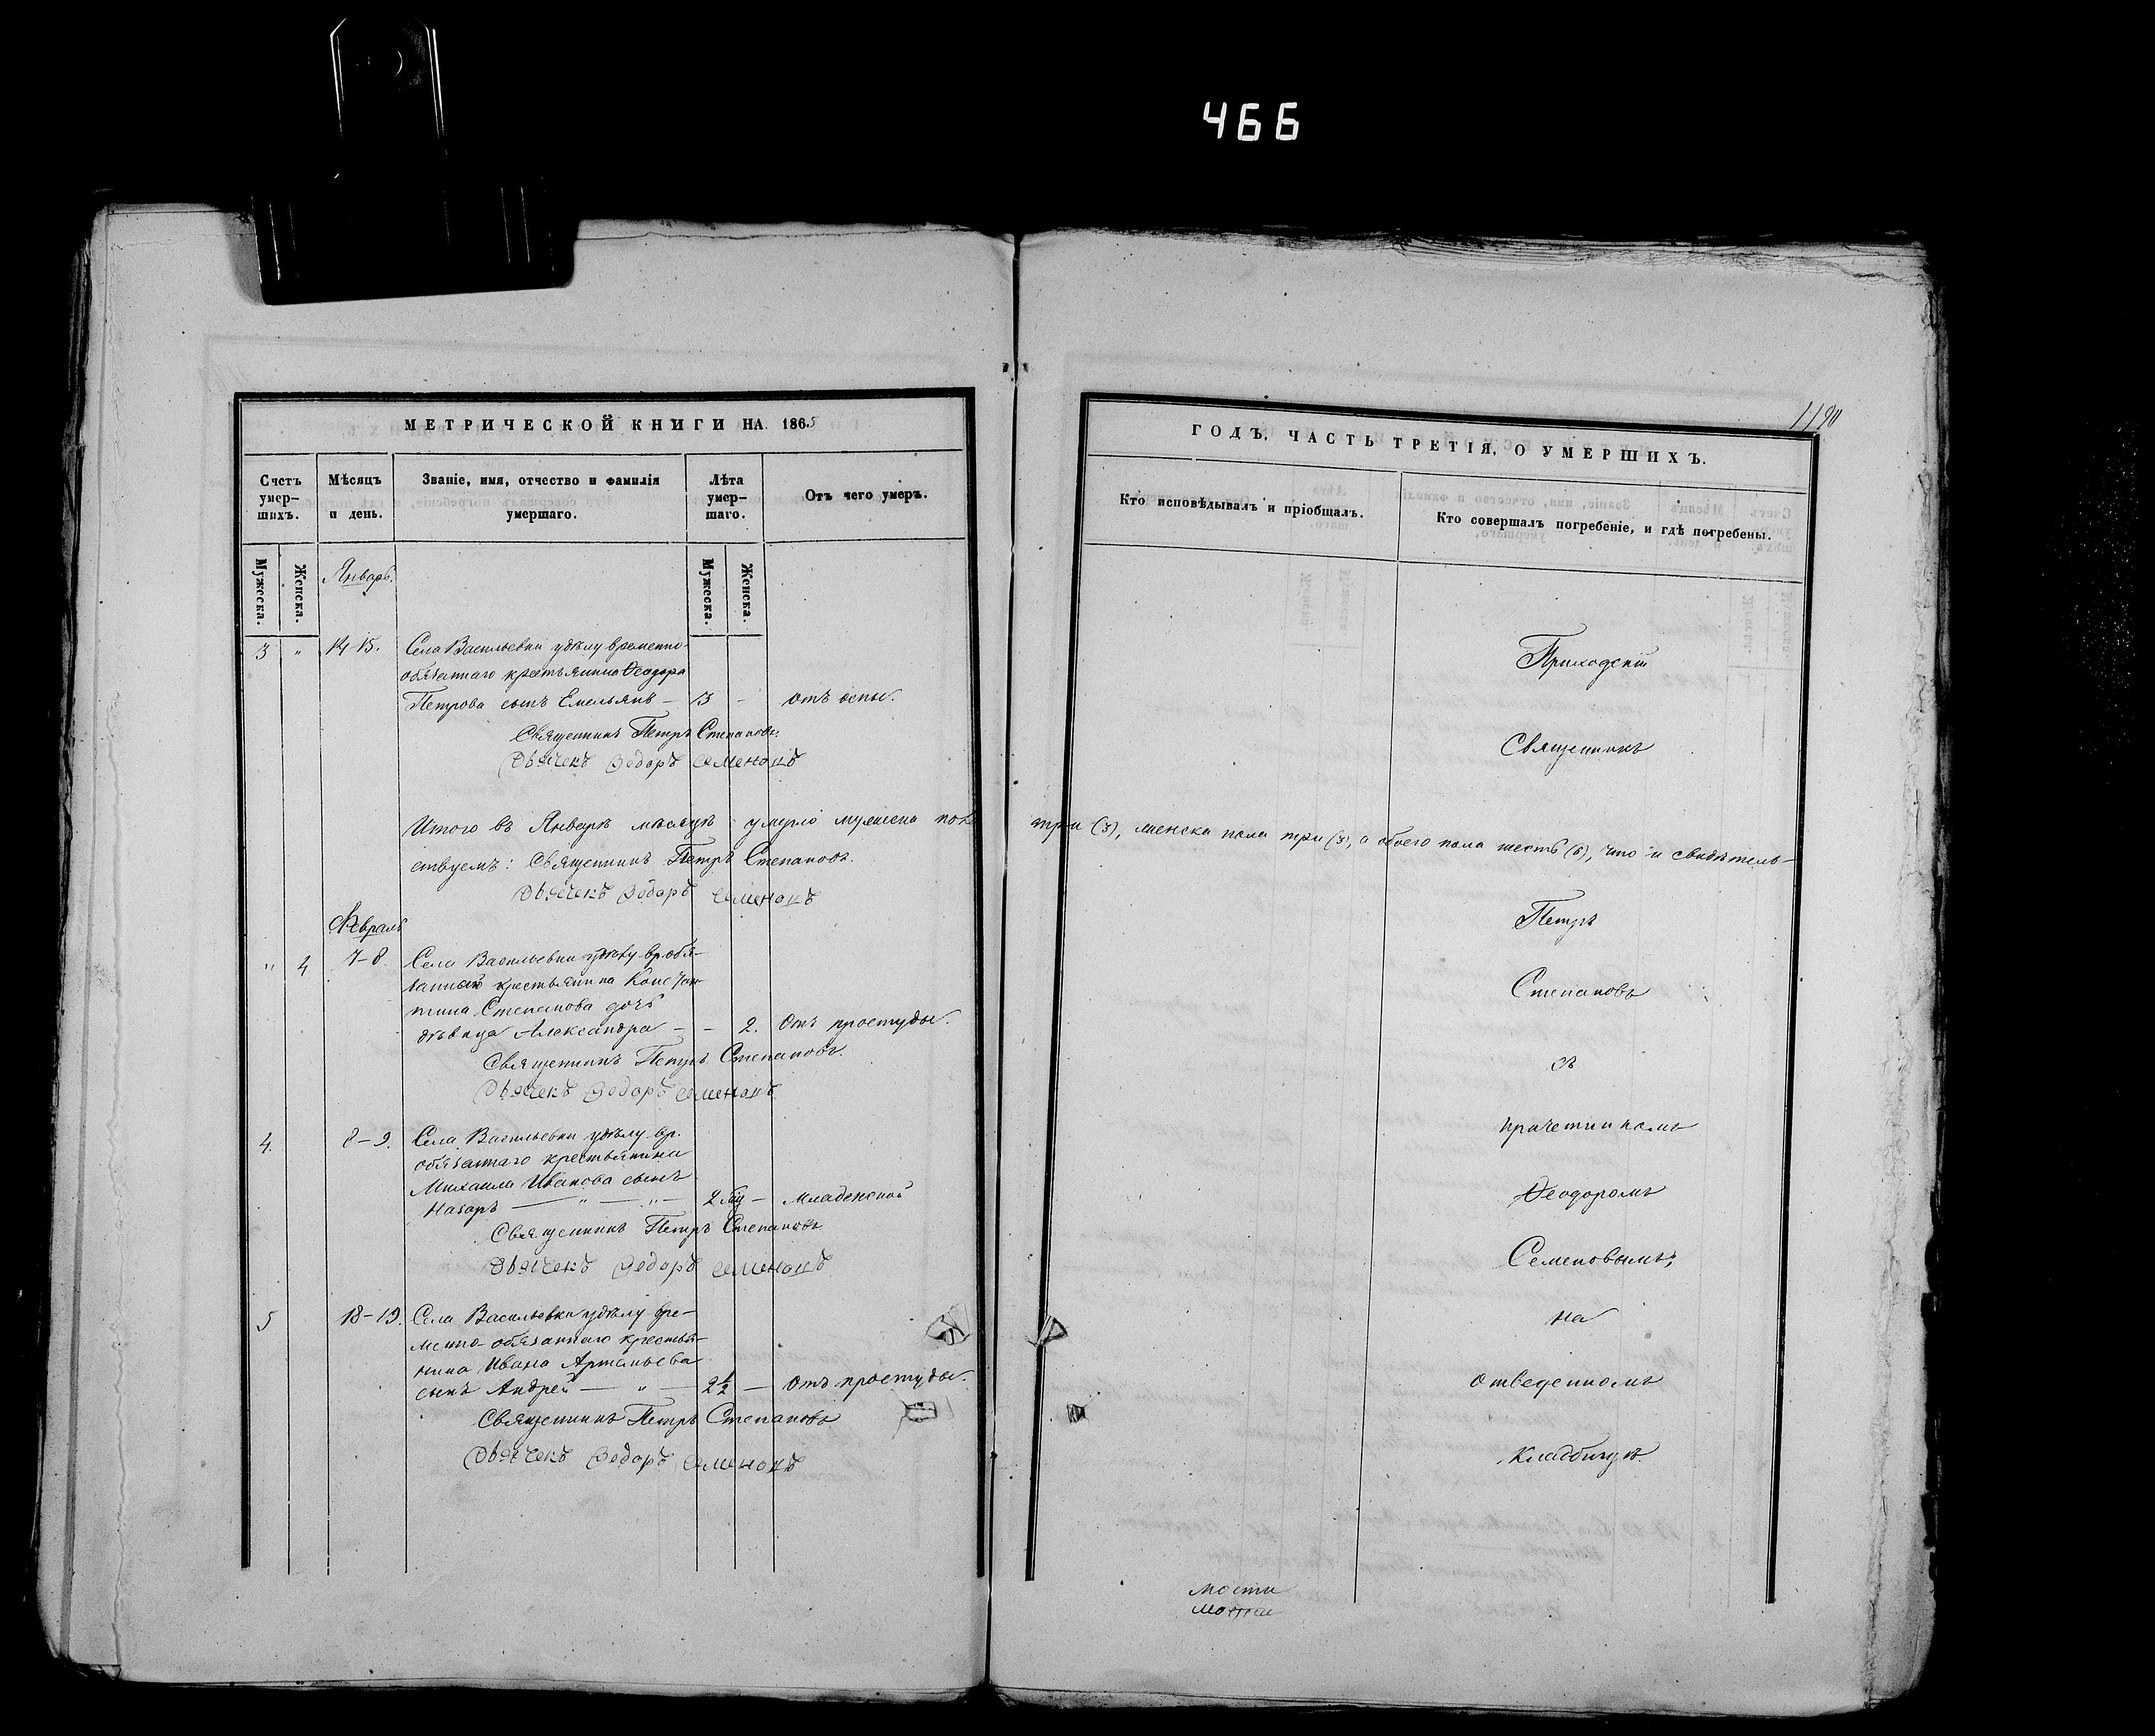 466
МЕТРИЧЕСКОЙ КНИГИ НА 1865
Счетъ умер-шихъ.
Мѣсяцъ и день.
Званіе, имя, отчество и фамилія умершаго.
Лѣта умер-шаго.
Отъ чего умеръ.
Мужеска.
Женска.
Январь.
Мужеска.
Женска.
3 " 14 15. Села Васильевки удѣлу временно-
обязаннаго крестьянина Ѳеодора
Петрова сынъ Емельянъ — 3 - отъ оспы.
Священникъ Петръ Степановъ.
Дьячекъ Ѳедоръ Семеновъ
Итого въ Январѣ мѣсяцѣ умерло мужеска пола
ствуемъ: Священникъ Петръ Степановъ.
Дьячекъ Ѳедоръ Семеновъ
Февраль
" 4 7-8 Села Васильевки удѣлу вр. обя-
крестьянина Констан-
тина Степанова дочь
дѣвица Александра — - 2. Отъ простуды.
Священникъ Петръ Степановъ.
Дьячекъ Ѳедоръ Семеновъ
4. 8-9. Села Васильевки удѣлу вр.
обязаннаго крестьянина
Михаила Иванова сынъ
Назаръ — " — " — 2 — Младенской
Священникъ Петръ Степановъ
Дьячекъ Ѳедоръ Семеновъ
5 18-19. Села Васильевки удѣлу вре-
менно-обязаннаго крестья-
нина Ивана Артемьева
сынъ Андрей — " — 2½ — Отъ простуды.
Священникъ Петръ Степановъ
Дьячекъ Ѳедоръ Семеновъ
ГОДЪ, ЧАСТЬ ТРЕТІЯ, О УМЕРШИХЪ.
Кто исповѣдывалъ и пріобщалъ.
Кто совершалъ погребеніе, и гдѣ погребены.
Приходскій
Священникъ
три (3), женска пола три (3), а обоего пола шесть (6), что и свидѣтель-
Петръ
Степановъ
съ
причетникомъ
Ѳеодоромъ
Семеновымъ,
на
отведенномъ
кладбищѣ.
мости